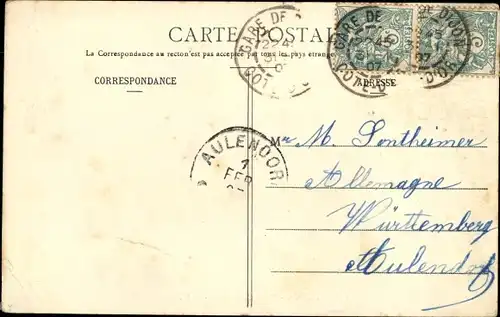 CARTE POSTALE
La Correspondance au recto n'est pas acceptée par tous les pays étrangers
CORRESPONDANCE
ADRESSE
GARE DE
COTE D'O
GARE DE
45
07
COTE-D
E DIJON
45
07
D'OR
AULENDOR
1
FEB
Mr M. Sontheimer
Allemagne
Württemberg
Aulendorf